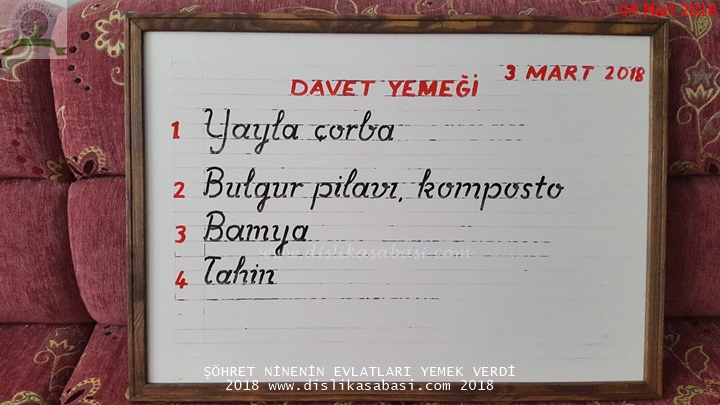 04 Mart 2018
3 MART 2018
DAVET YEMEĞİ
1 Yayla çorba
2 Bulgur pilavı, komposto
3 Bamya
www.dislikasabasi.com
4 Tahin
ŞÖHRET NİNENİN EVLATLARI YEMEK VERDİ
2018 www.dislikasabasi.com 2018